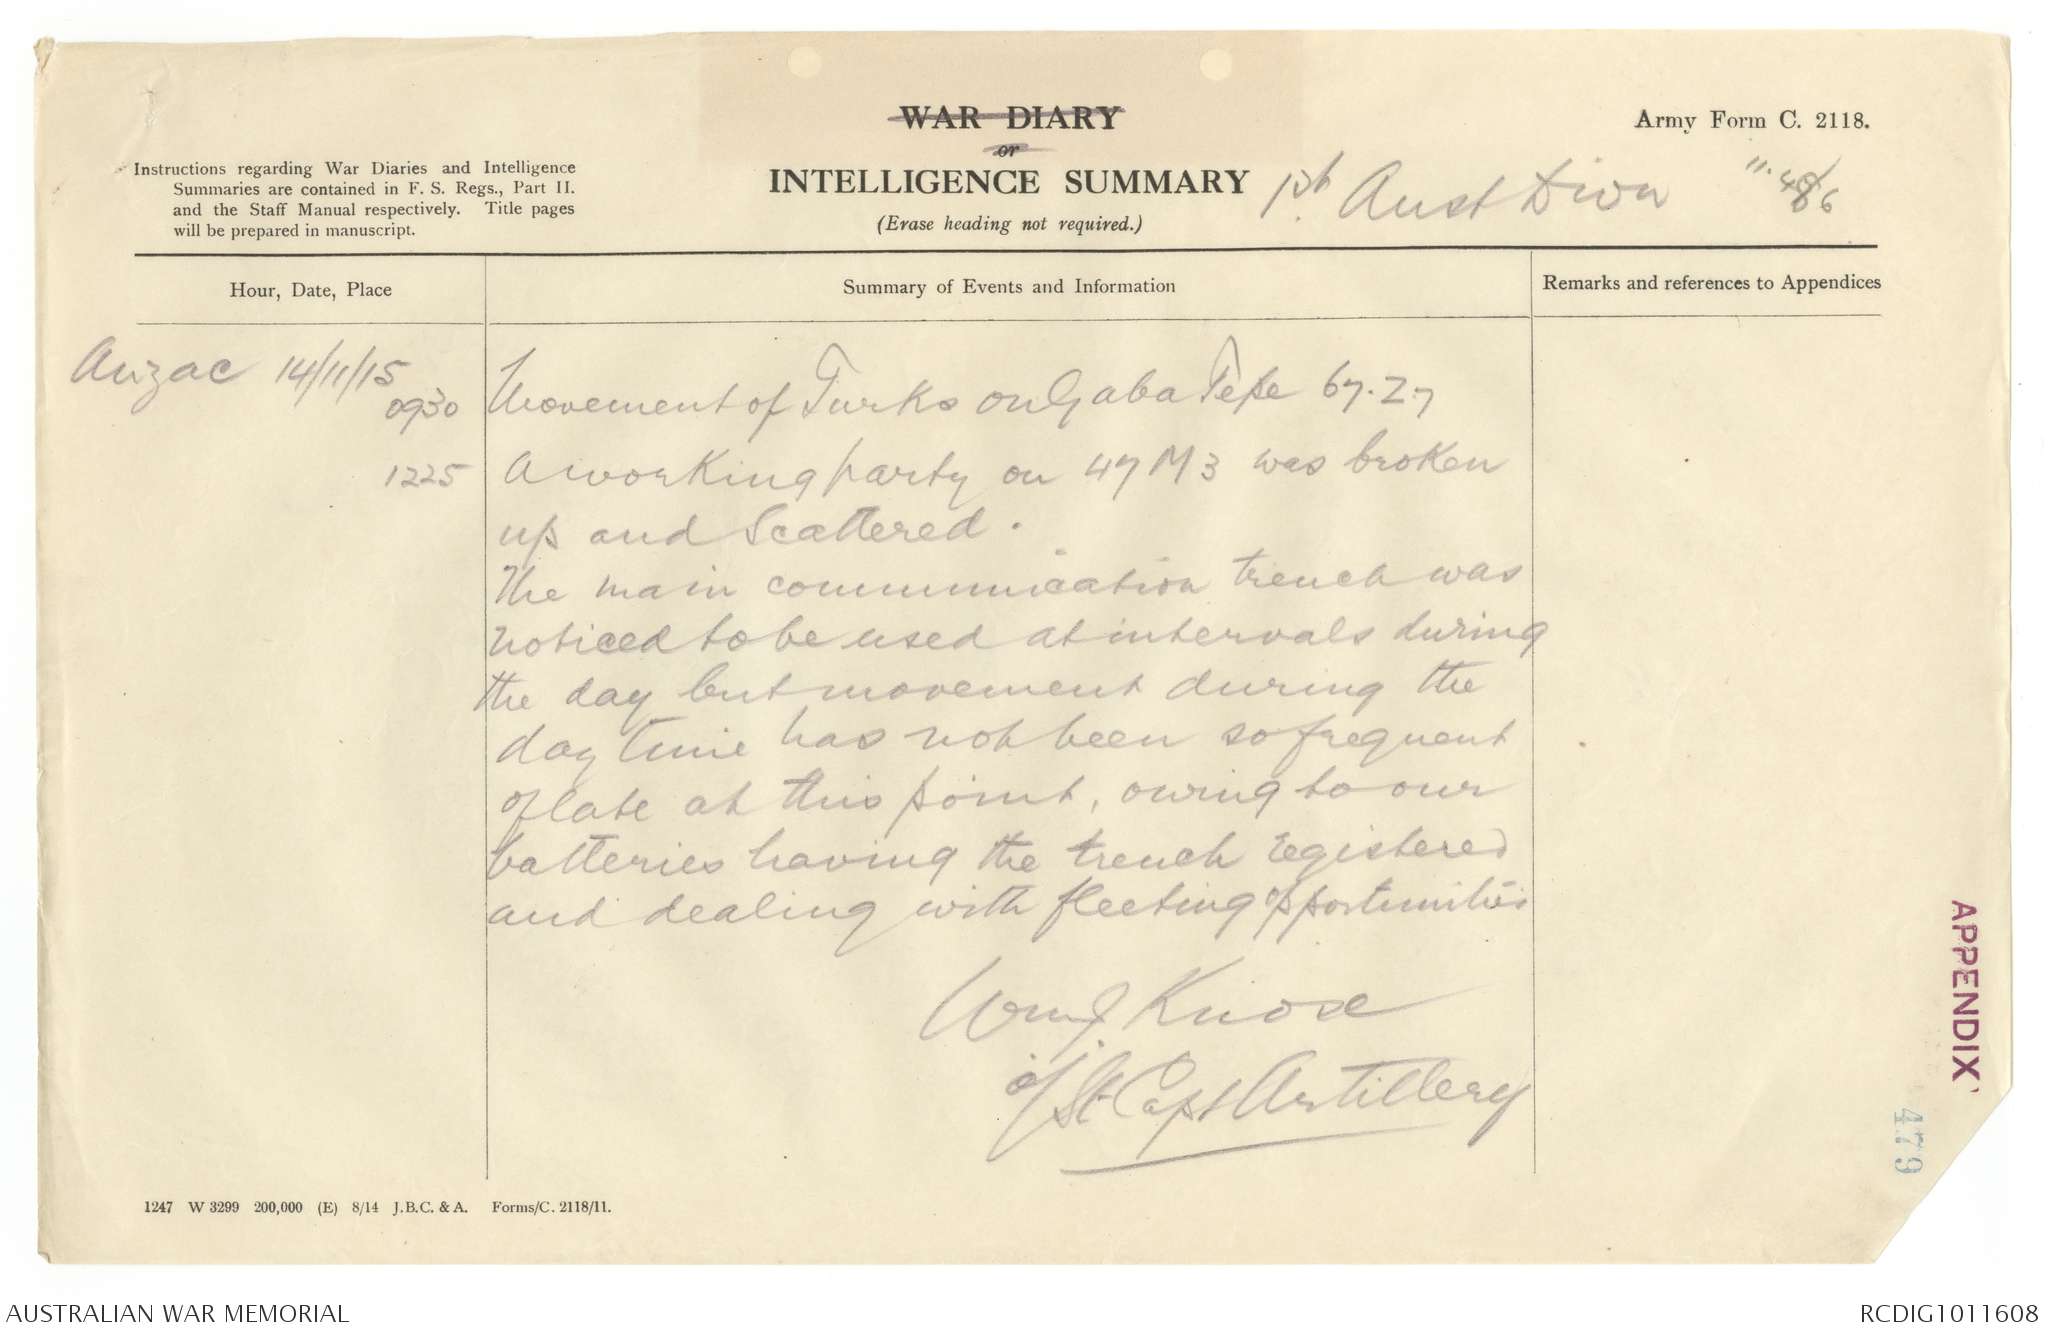 WAR DIARY
or
INTELLIGENCE SUMMARY
(Erase heading not required.)
Army Form C. 2118.
Instructions regarding War Diaries and Intelligence
Summaries are contained in F. S. Regs., Part II.
and the Staff Manual respectively. Title pages
will be prepared in manuscript.
1st Aust Divn
Hour, Date, Place
Summary of Events and Information
Remarks and references to Appendices
Anzac 14/11/15
0930 Movement of Turks on Gaba Tepe 67.Z7
1225 A working party on 47 M 3 was broken
up and Scattered.
The main communication trench was
noticed to be used at intervals during
the day but movement during the
day time has not been so frequent
of late at this point, owing to our
batteries having the trench registered
and dealing with fleeting opportunities
Wm J Knox
St Capt Artillery
APPENDIX
479
1247 W 3299 200,000 (E) 8/14 J.B.C. & A. Forms/C. 2118/11.
AUSTRALIAN WAR MEMORIAL
RCDIG1011608